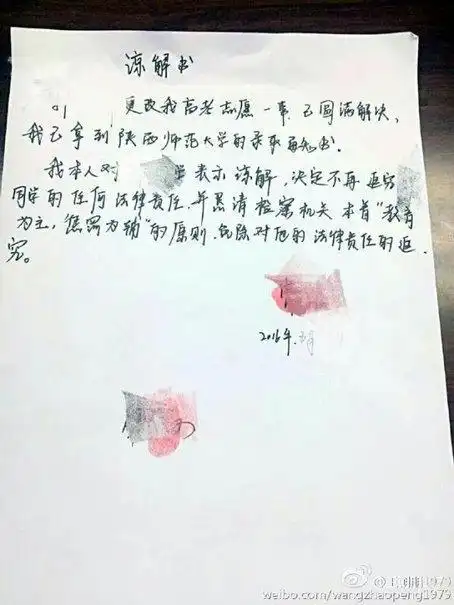 谅解书
更改我高考志愿一事,已圆满解决,
我已拿到陕西师范大学的录取通知书.
我本人对 表示谅解,决定不再追究
同学的任何法律责任.并恳请检察机关本着"教育
为主,惩罚为辅"的原则.免除对他的法律责任的追
究。
2016年.
weibo.com/wangzhaopeng1979